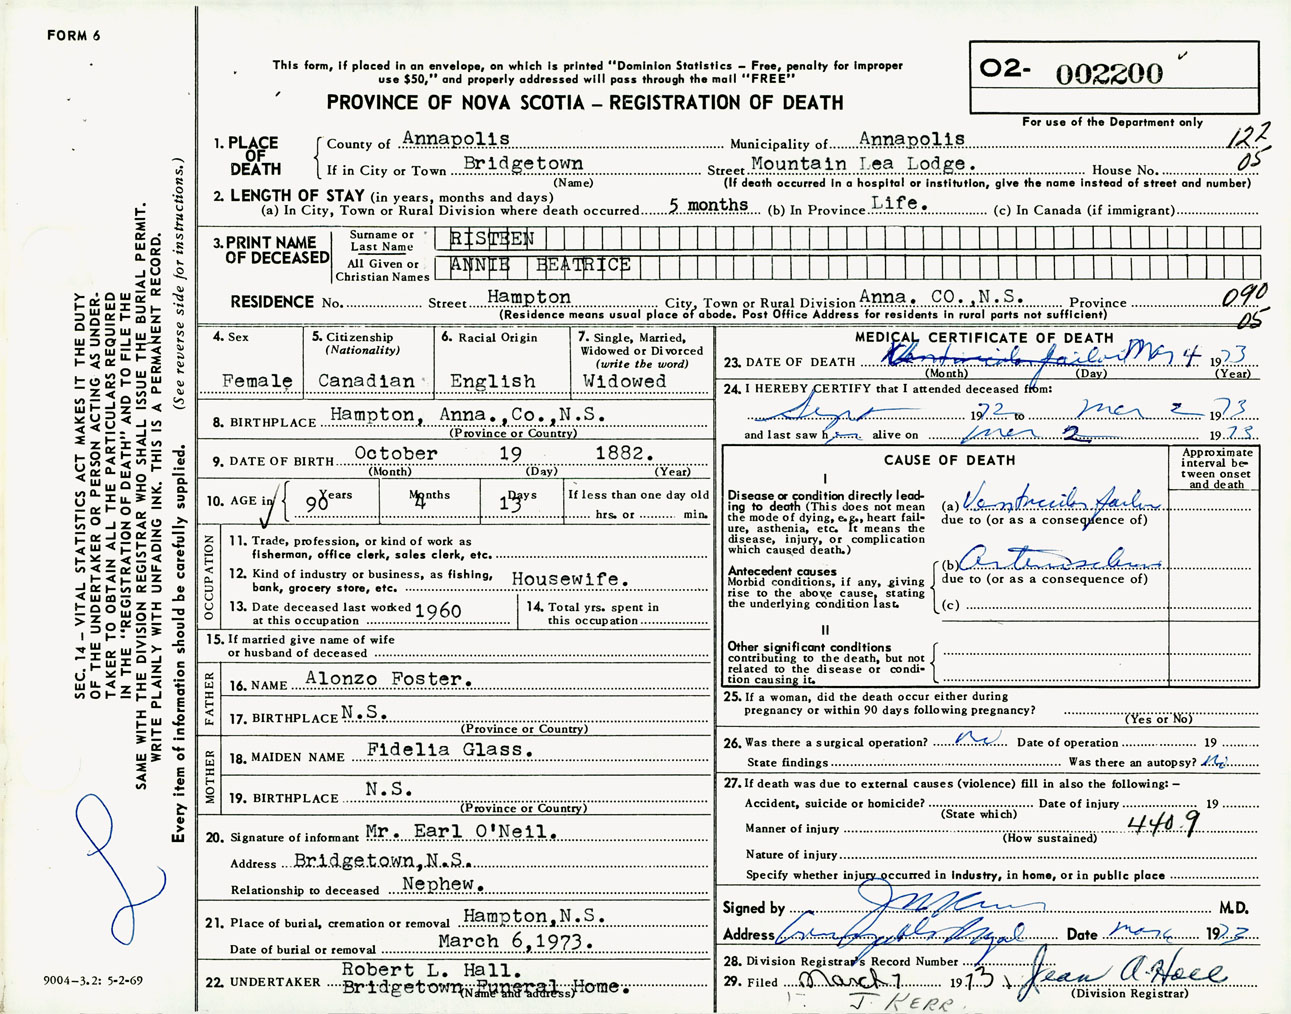 FORM 6
This form, if placed in an envelope, on which is printed "Dominion Statistics – Free, penalty for improper
use $50," and properly addressed will pass through the mail "FREE"
PROVINCE OF NOVA SCOTIA – REGISTRATION OF DEATH
O2- 002200
For use of the Department only
1. PLACE OF DEATH
County of Annapolis Municipality of Annapolis 122
If in City or Town Bridgetown Street Mountain Lea Lodge. House No. 05
(Name) (If death occurred in a hospital or institution, give the name instead of street and number)
2. LENGTH OF STAY (in years, months and days)
(a) In City, Town or Rural Division where death occurred 5 months (b) In Province Life. (c) In Canada (if immigrant)
3. PRINT NAME OF DECEASED
Surname or Last Name RISTEEN
All Given or Christian Names ANNIE BEATRICE
RESIDENCE No. Street Hampton City, Town or Rural Division Anna. CO.,N.S. Province 090
(Residence means usual place of abode. Post Office Address for residents in rural parts not sufficient) 05
4. Sex
Female
5. Citizenship
(Nationality)
Canadian
6. Racial Origin
English
7. Single, Married,
Widowed or Divorced
(write the word)
Widowed
8. BIRTHPLACE Hampton, Anna.,Co.,N.S.
(Province or Country)
9. DATE OF BIRTH October 19 1882.
(Month) (Day) (Year)
10. AGE in Years Months Days If less than one day old
90 4 13 hrs. or min.
OCCUPATION
11. Trade, profession, or kind of work as
fisherman, office clerk, sales clerk, etc.
12. Kind of industry or business, as fishing,
bank, grocery store, etc. Housewife.
13. Date deceased last worked
at this occupation 1960
14. Total yrs. spent in
this occupation
15. If married give name of wife
or husband of deceased
FATHER
16. NAME Alonzo Foster.
17. BIRTHPLACE N.S.
(Province or Country)
MOTHER
18. MAIDEN NAME Fidelia Glass.
19. BIRTHPLACE N.S.
(Province or Country)
20. Signature of informant Mr. Earl O'Neil.
Address Bridgetown,N.S.
Relationship to deceased Nephew.
21. Place of burial, cremation or removal Hampton,N.S.
Date of burial or removal March 6,1973.
22. UNDERTAKER Robert L. Hall.
Bridgetown Funeral Home.
(Name and address)
MEDICAL CERTIFICATE OF DEATH
23. DATE OF DEATH Mar 4 1973
(Month) (Day) (Year)
24. I HEREBY CERTIFY that I attended deceased from:
Sept 1972 to Mar 2 1973
and last saw her alive on Mar 2 1973
CAUSE OF DEATH
Approximate
interval be-
tween onset
and death
I
Disease or condition directly lead-
ing to death (This does not mean
the mode of dying, e.g., heart fail-
ure, asthenia, etc. It means the
disease, injury, or complication
which caused death.)
(a) Ventricular failure
due to (or as a consequence of)
Antecedent causes
Morbid conditions, if any, giving
rise to the above cause, stating
the underlying condition last.
(b)
due to (or as a consequence of)
(c)
II
Other significant conditions
contributing to the death, but not
related to the disease or condi-
tion causing it.
25. If a woman, did the death occur either during
pregnancy or within 90 days following pregnancy?
(Yes or No)
26. Was there a surgical operation? no Date of operation 19
State findings Was there an autopsy? No
27. If death was due to external causes (violence) fill in also the following: –
Accident, suicide or homicide? Date of injury 19
(State which)
Manner of injury 440.9
(How sustained)
Nature of injury
Specify whether injury occurred in industry, in home, or in public place
Signed by M.D.
Address Annapolis Royal Date 1973
28. Division Registrar's Record Number
29. Filed March 7 1973 Jean A. Hall
(Division Registrar)
J. KERR
SEC. 14 – VITAL STATISTICS ACT MAKES IT THE DUTY
OF THE UNDERTAKER OR PERSON ACTING AS UNDER-
TAKER TO OBTAIN ALL THE PARTICULARS REQUIRED
IN THE "REGISTRATION OF DEATH" AND TO FILE THE
SAME WITH THE DIVISION REGISTRAR WHO SHALL ISSUE THE BURIAL PERMIT.
WRITE PLAINLY WITH UNFADING INK. THIS IS A PERMANENT RECORD.
Every item of information should be carefully supplied. (See reverse side for instructions.)
9004-3.2: 5-2-69